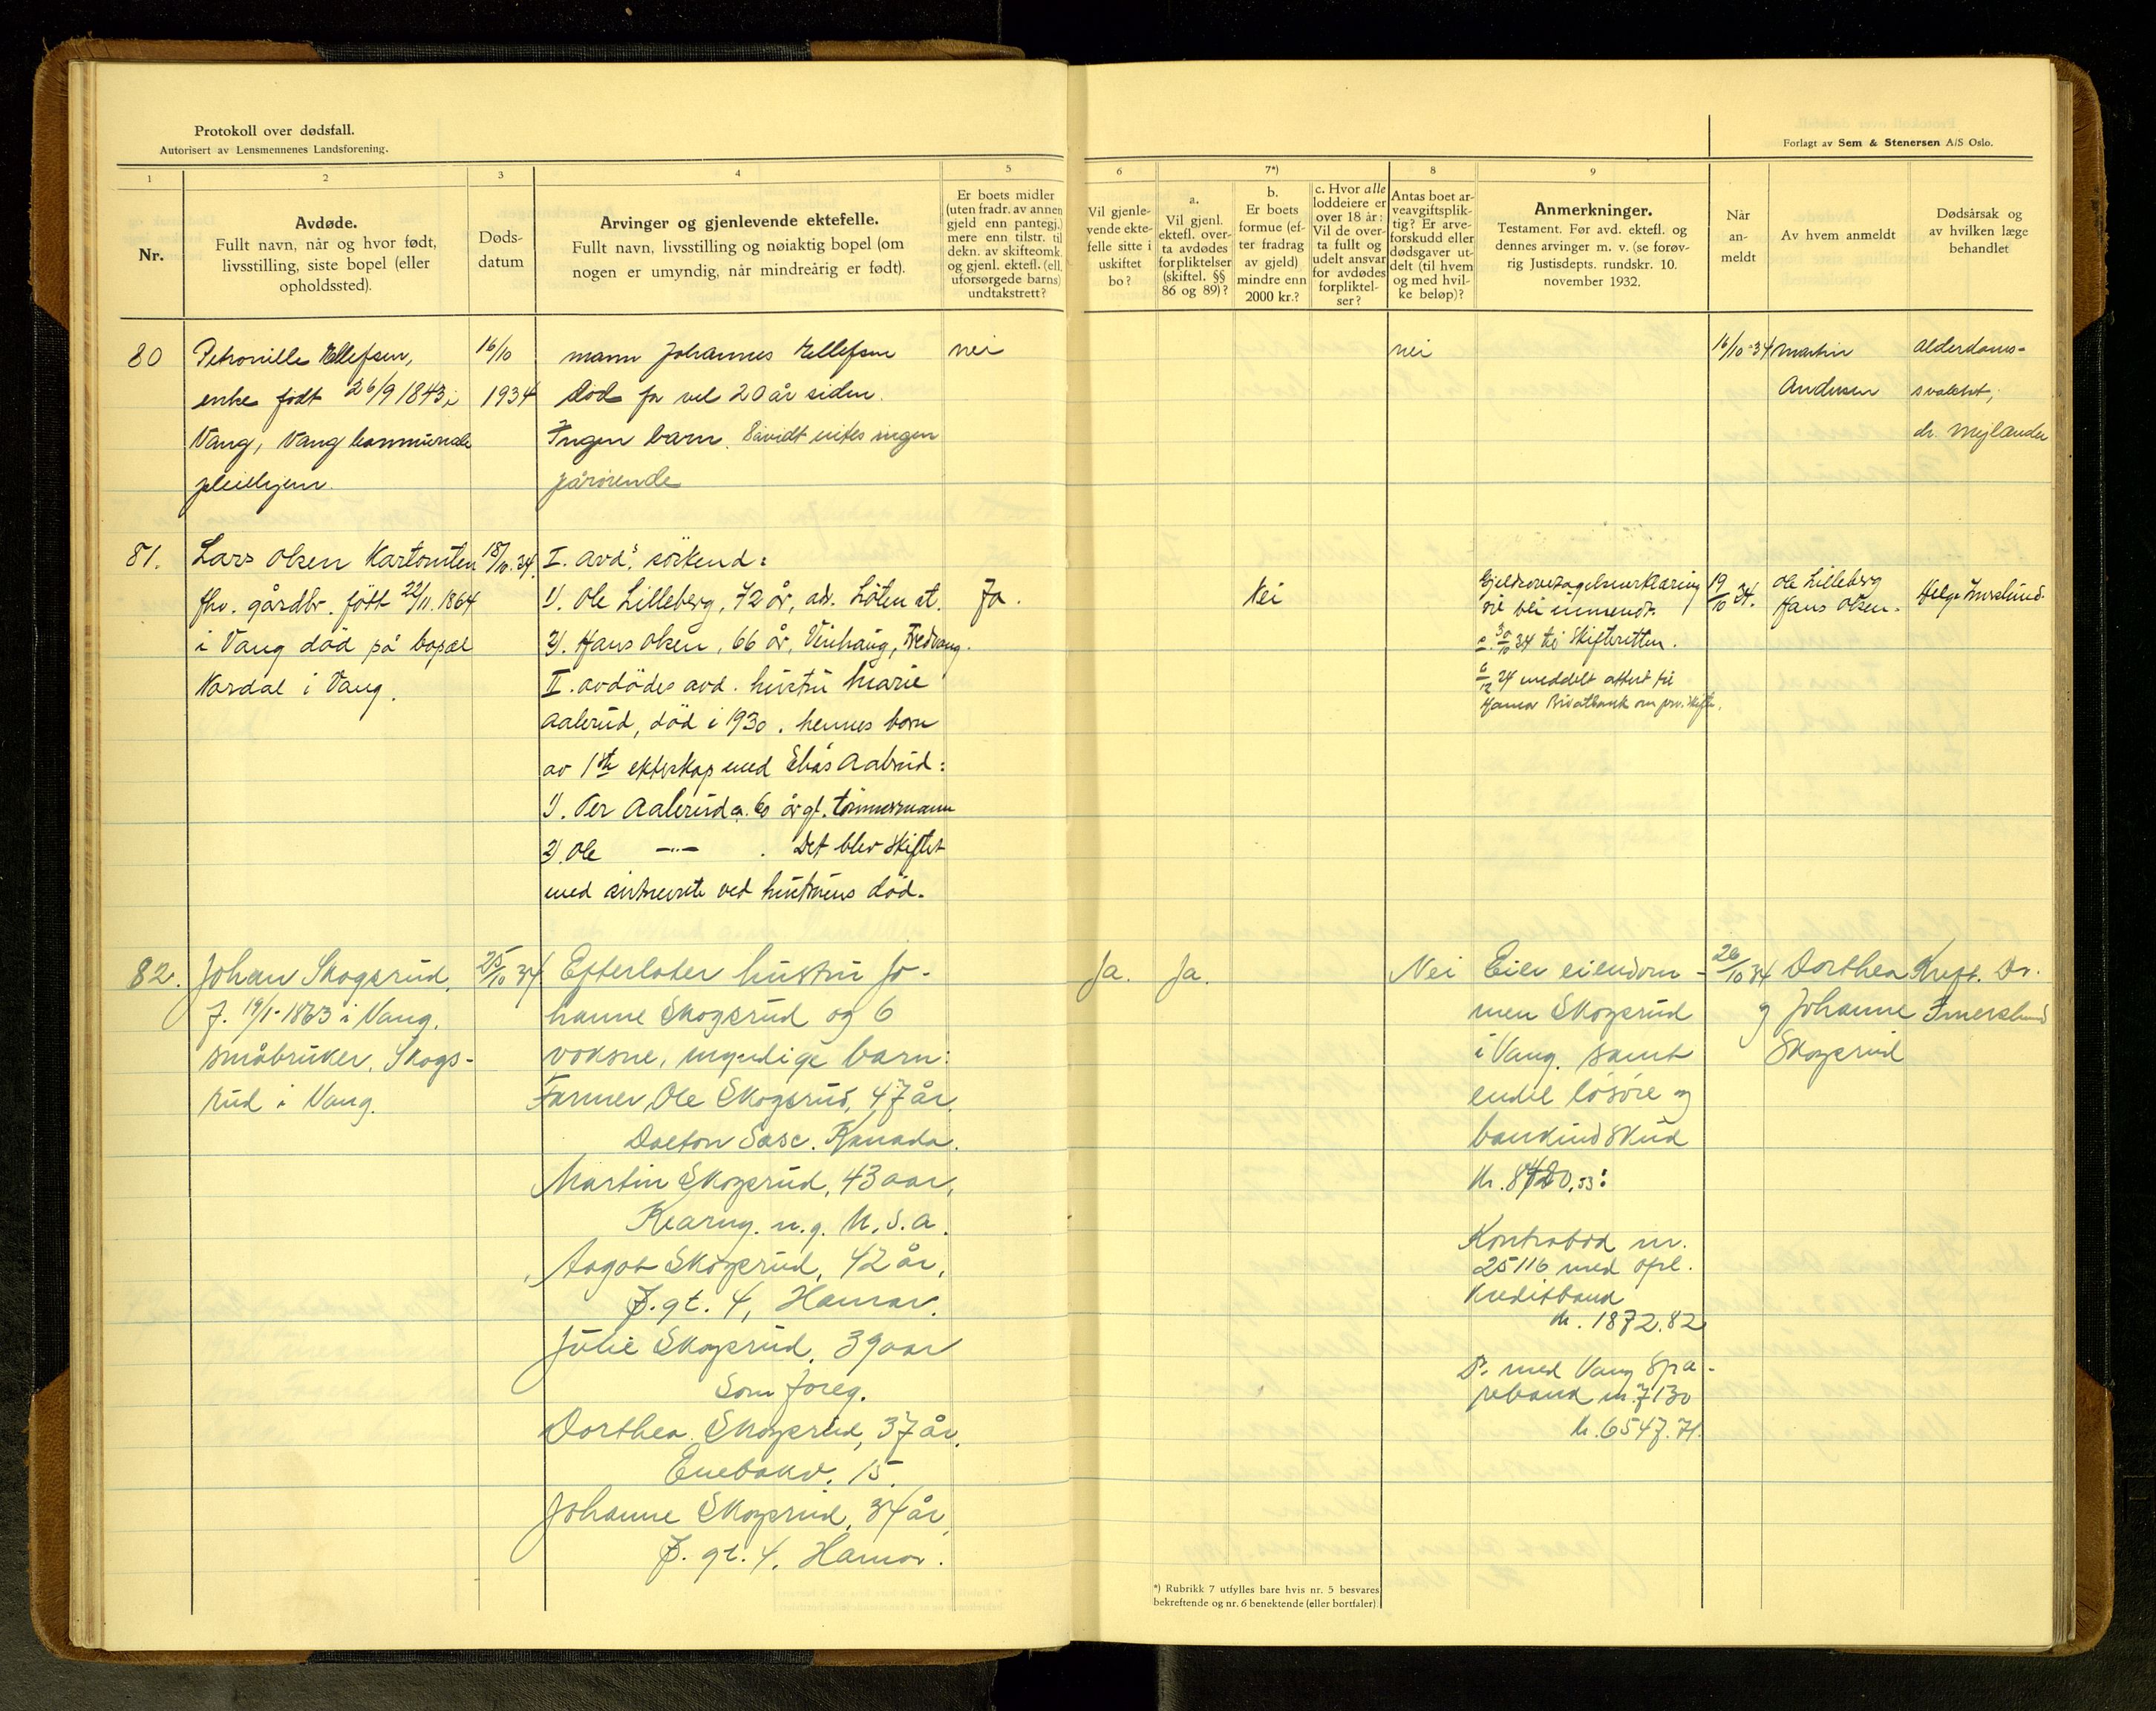 Protokoll over dødsfall.
Autorisert av Lensmennenes Landsforening.
Forlagt av Sem & Stenersen A/S Oslo.
1
2
3
4
5
6
7*)
8
9
Nr.
Avdøde.
Fullt navn, når og hvor født,
livsstilling, siste bopel (eller
opholdssted).
Døds-
datum
Arvinger og gjenlevende ektefelle.
Fullt navn, livsstilling og nøiaktig bopel (om
nogen er umyndig, når mindreårig er født).
Er boets midler
(uten fradr. av annen
gjeld enn pantegj.)
mere enn tilstr. til
dekn. av skifteomk.
og gjenl. ektefl. (ell.
uforsørgede barns)
undtakstrett?
Vil gjenle-
vende ekte-
felle sitte i
uskiftet
bo?
a.
Vil gjenl.
ektefl. over-
ta avdødes
forpliktelser
(skiftel. §§
86 og 89)?
b.
Er boets
formue (ef-
ter fradrag
av gjeld)
mindre enn
2000 kr.?
c. Hvor alle
loddeiere er
over 18 år:
Vil de over-
ta fullt og
udelt ansvar
for avdødes
forpliktel-
ser?
Antas boet ar-
veavgiftsplik-
tig? Er arve-
forskudd eller
dødsgaver ut-
delt (til hvem
og med hvil-
ke beløp)?
Anmerkninger.
Testament. Før avd. ektefl. og
dennes arvinger m. v. (se forøv-
rig Justisdepts. rundskr. 10.
november 1932.
Når
an-
meldt
Av hvem anmeldt
Dødsårsak og
av hvilken læge
behandlet
80
Petronille Ellefsen,
enke født 26/9 1843 i
Vang, Vang kommunale
pleiehjem.
16/10
1934
mann Johannes Ellefsen
død for vel 20 år siden.
Ingen barn. Såvidt vites ingen
pårørende
nei
nei
16/10-34
Martin
Andersen
alderdoms-
svakhet,
dr. Mejlænder
81.
Lars Olsen Kartomten
fhv. gårdbr. født 22/11. 1864
i Vang død på bopæl
Nordal i Vang.
18/10. 34.
I. avd's søskend:
1). Ole Lilleberg, 72 år, adr. Løten st.
2). Hans Olsen, 66 år, Vinhaug, Nedvang.
II. avdødes avd. hustru Marie
Aalerud, død i 1930. hennes barn
av 1ste ekteskap med Elias Aalrud:
1). Per Aalerud ca. 60 år gl. tømmermann
2). Ole —"— . Det blev skiftet
med arvingerne ved hustruens død.
Ja.
Nei
Gjeldsovertagelseserklæring
vil bli innsendt.
30/10 34 til Skifteretten.
6/12 34 meddelt attest til
Hamar Privatbank om priv. skifte.
19/10 34.
Ole Lilleberg
Hans Olsen.
Helge Imerslund.
82.
Johan Skogsrud,
f. 19/1-1863 i Vang.
småbruker, Skogs-
rud i Vang.
25/10 34
Efterlater hustru Jo-
hanne Skogsrud og 6
voksne, myndige barn:
Farmer Ole Skogsrud, 47 år,
Sasc. Kanada.
Martin Skogsrud, 43 aar,
Kearny. n. g. U. S. a.
Aagot Skogsrud, 42 år,
gt. 4, Hamar.
Julie Skogsrud, 39 aar
Som foreg.
Dorthea Skogsrud, 37 år,
Enebakv. 15.
Johanne Skogsrud, 34 år,
gt. 4. Hamar.
Ja.
Ja.
Nei
Eier eiendom-
men Skogsrud
i Vang, samt
endel løsøre og
bankindskud
Kr. 8420,53:
Kontrabok nr.
25116 med Opl.
Kreditbank
kr. 1872.82
Do. med Vang Spa-
rebank nr. 7130
kr. 6547.71.
26/10 34
Dorthea
og Johanne
Skogsrud
Kreft. Dr.
Imerslund
*) Rubrikk 7 utfylles bare hvis nr. 5 besvares
bekreftende og nr. 6 benektende (eller bortfaler)